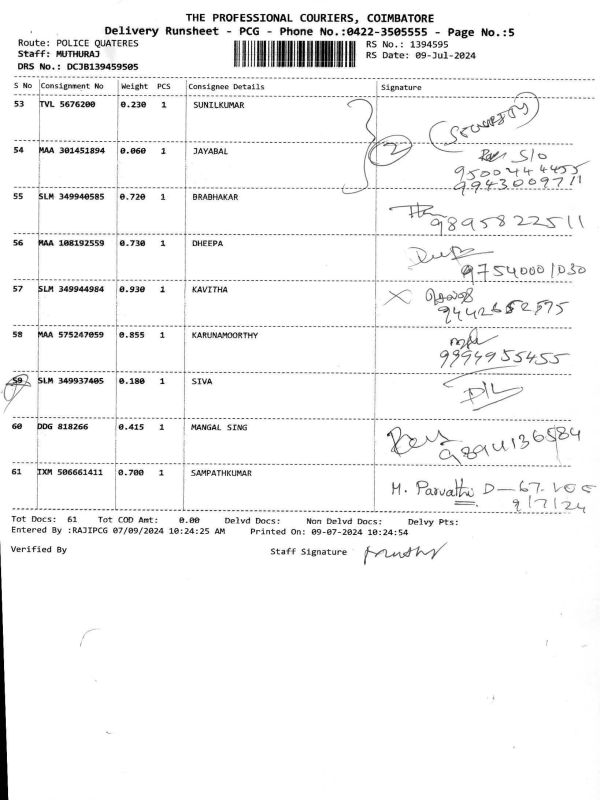 THE PROFESSIONAL COURIERS, COIMBATORE
Delivery Runsheet - PCG - Phone No.:0422-3505555 - Page No.:5
Route: POLICE QUATERES RS No.: 1394595
Staff: MUTHURAJ RS Date: 09-Jul-2024
DRS No.: DCJB139459505
S No Consignment No Weight PCS Consignee Details Signature
53 TVL 5676200 0.230 1 SUNILKUMAR
(SECURITY)
54 MAA 301451894 0.060 1 JAYABAL 2 S/O
9500444455
9943009711
55 SLM 349940585 0.720 1 BRABHAKAR
9895822511
56 MAA 108192559 0.730 1 DHEEPA
97540001030
57 SLM 349944984 0.930 1 KAVITHA X
58 MAA 575247059 0.855 1 KARUNAMOORTHY
9994955455
59 SLM 349937405 0.180 1 SIVA
D/L
60 DDG 818266 0.415 1 MANGAL SING
9894136584
61 IXM 506661411 0.700 1 SAMPATHKUMAR
M. Parvathi D-67.
9/7/24
Tot Docs: 61 Tot COD Amt: 0.00 Delvd Docs: Non Delvd Docs: Delvy Pts:
Entered By :RAJIPCG 07/09/2024 10:24:25 AM Printed On: 09-07-2024 10:24:54
Verified By Staff Signature